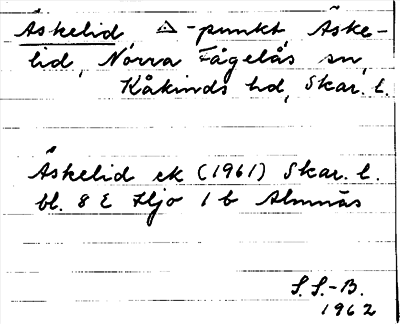 Äskelid △-punkt Äske-
lid, Norra Fågelås sn,
Kåkinds hd, Skar. l.
Äskelid ek (1961) Skar. l.
bl. 8 E Hjo 1 b Almnäs
S. S.-B.
1962